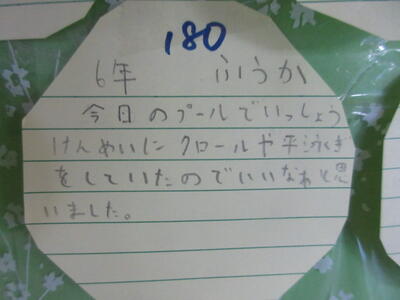 180
6年 ふうか
今日のプールでいっしょう
けんめいにクロールや平泳ぎ
をしていたのでいいなあと思
いました。